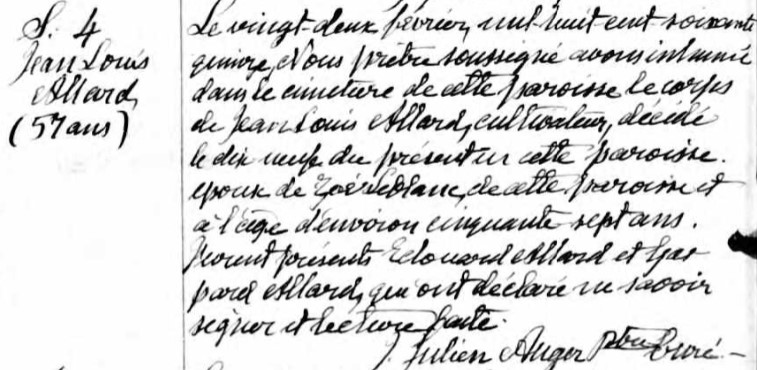 S. 4
Jean Louis
Allard,
(57 ans)
Le vingt-deux février, mil huit cent soixante
quinze, Nous prêtre soussigné avons inhumé
dans le cimetière de cette paroisse le corps
de Jean Louis Allard, cultivateur, décédé
le dix neuf du présent en cette paroisse.
époux de Zoé Leblanc, de cette paroisse et
à l'âge d'environ cinquante sept ans.
Furent présents Edouard Allard et Gas
pard Allard, qui ont déclaré ne savoir
signer et lecture faite.
Julien Auger Ptre Curé.-